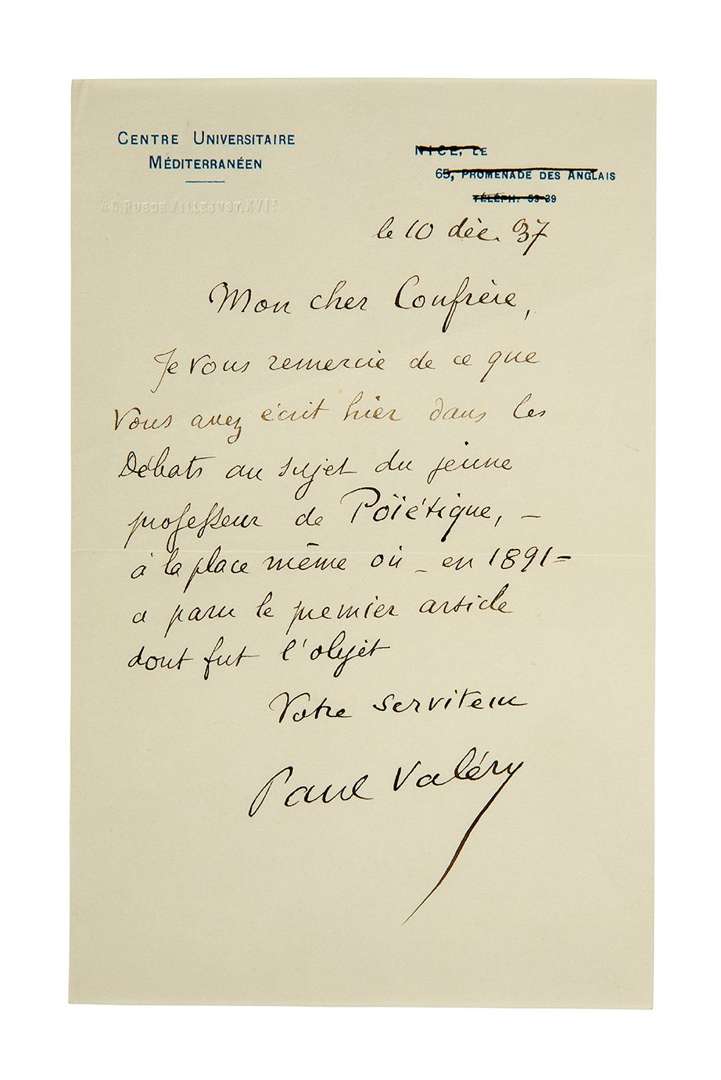 CENTRE UNIVERSITAIRE
MÉDITERRANÉEN
NICE, LE
65, PROMENADE DES ANGLAIS
TÉLÉPH.
40, RUE DE VILLEJUST. XVIe
le 10 déc. 37
Mon cher Confrère,
Je vous remercie de ce que
vous avez écrit hier dans les
Débats au sujet du jeune
professeur de Poïétique, –
à la place même où – en 1891 –
a paru le premier article
dont fut l'objet
Votre serviteur
Paul Valéry